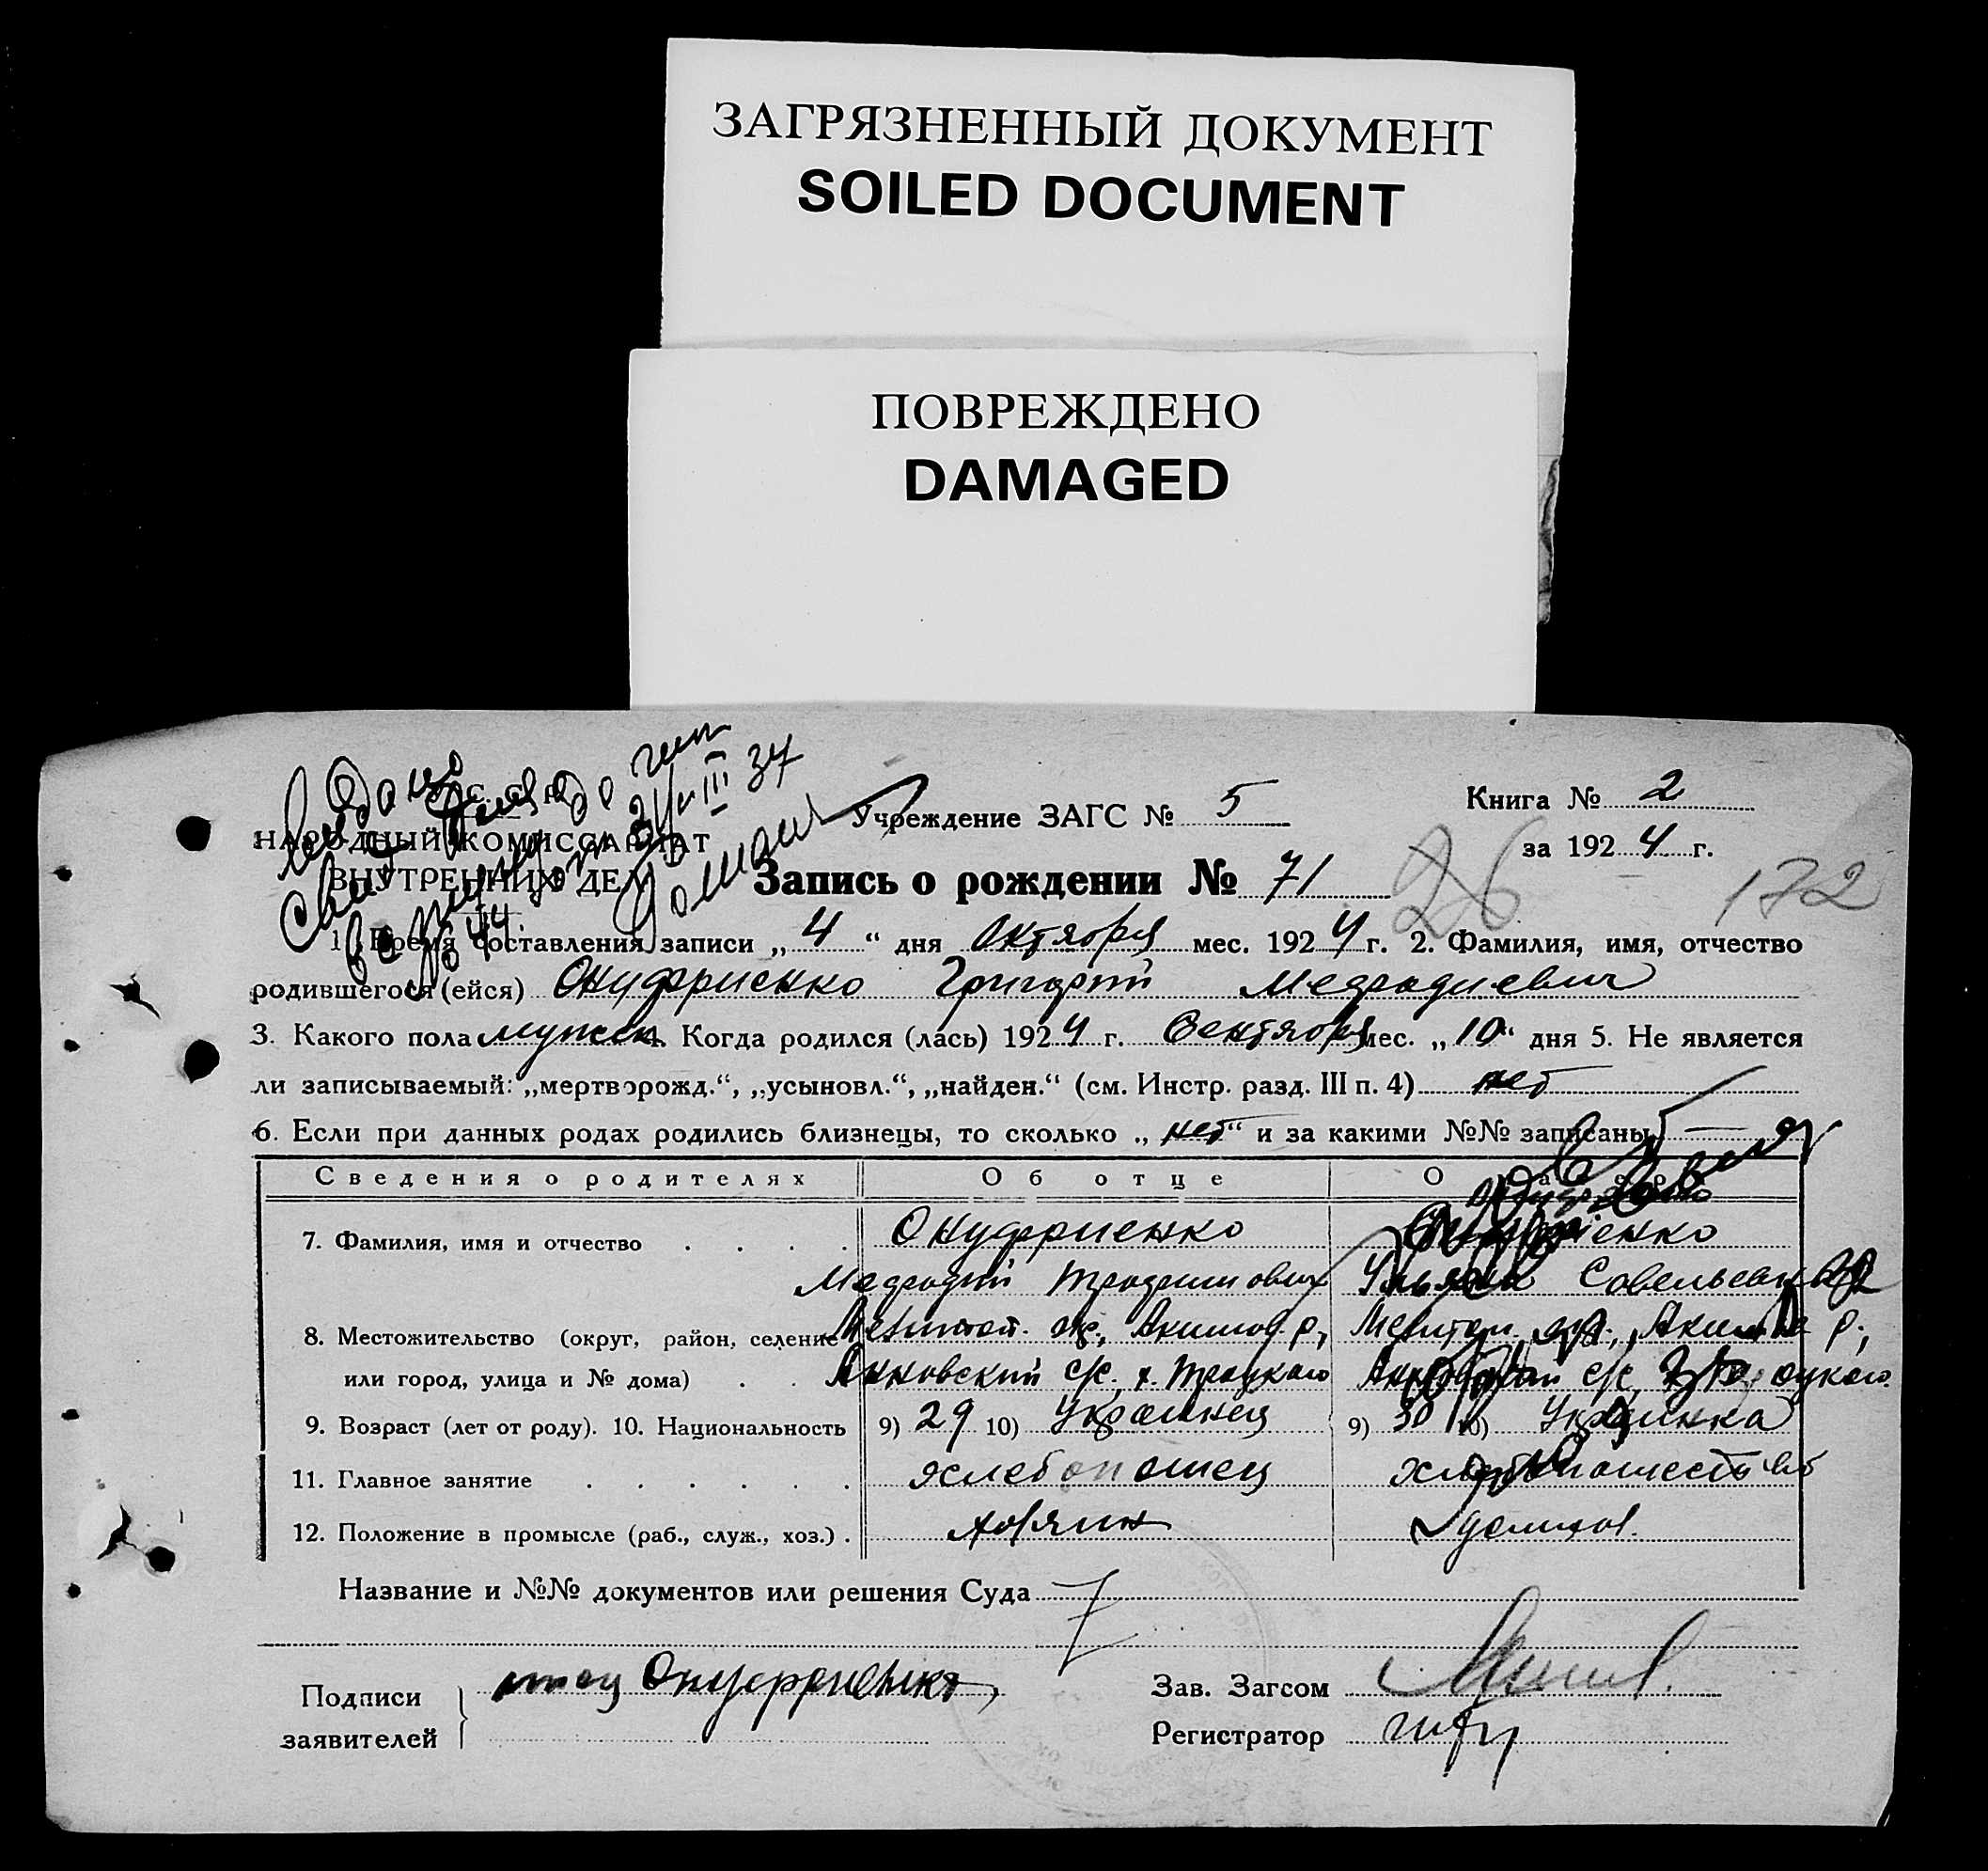 ЗАГРЯЗНЕННЫЙ ДОКУМЕНТ
SOILED DOCUMENT
ПОВРЕЖДЕНО
DAMAGED
III 37
Книга № 2
Учреждение ЗАГС № 5
за 1924 г.
НАРОДНЫЙ КОМИССАРИАТ
ВНУТРЕННИХ ДЕЛ
Запись о рождении № 71
26
172
1. Время составления записи „4“ дня Октября мес. 1924 г. 2. Фамилия, имя, отчество
родившегося (ейся) Онуфриенко Григорий Мефодиевич
3. Какого пола мужск 4. Когда родился (лась) 1924 г. Сентября мес. „10“ дня 5. Не является
ли записываемый: „мертворожд.“, „усыновл.“, „найден.“ (см. Инстр. разд. III п. 4) нет
6. Если при данных родах родились близнецы, то сколько „нет“ и за какими №№ записаны
Сведения о родителях Об отце О
7. Фамилия, имя и отчество Онуфриенко
Мефодий Трофимович Савельевна
8. Местожительство (округ, район, селение Мелитоп. ок., Акимов. р., Мелитоп. р.,
или город, улица и № дома) Анновский с/с. х. Троцкого с/с
9. Возраст (лет от роду). 10. Национальность 9) 29 10) Украинец 9) 30 10) Украинка
11. Главное занятие хлебопашец
12. Положение в промысле (раб., служ., хоз.) хозяин домохоз.
Название и №№ документов или решения Суда
Подписи отец Онуфриенко Зав. Загсом
заявителей Регистратор